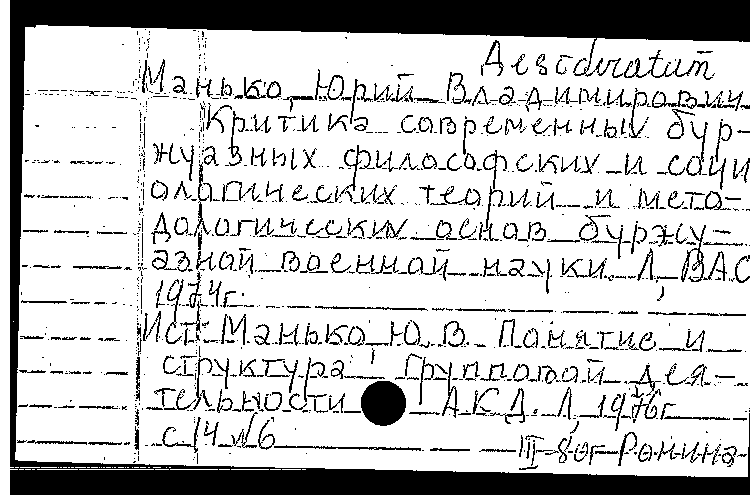 Desideratum
Манько, Юрий Владимирович
Критика современных бур-
жуазных философских и соци
ологических теорий и мето-
дологических основ буржу-
азной военной науки. Л, ВАС
1974г.
Ист: Манько Ю.В. Понятие и
структура групповой дея-
тельности АКД. Л, 1976г
с 14 №6
III-80г Ронина